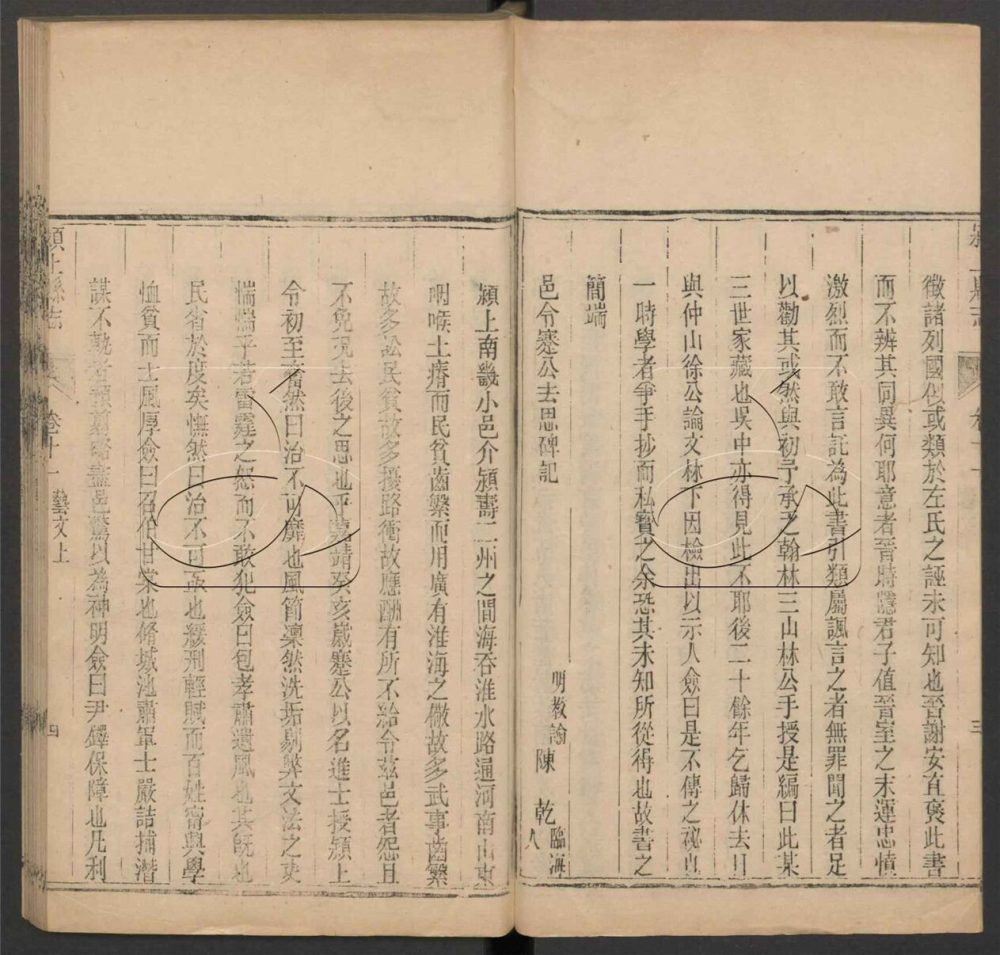 徵諸列國似或類於左氏之誣未可知也晉謝安宜褒此書
而不辨其同異何耶意者晉時隱君子值晉室之末運忠憤
激烈而不敢言託為此書引類屬諷言之者無罪聞之者足
以勸其或然與初予承乏翰林三山林公手授是編曰此某
三世家藏也吳中亦得見此不耶後二十餘年乞歸休去日
與仲山徐公論文林下因檢出以示人僉曰是不傳之秘也
一時學者爭手抄而私寶之余恐其未知所從得也故書之
簡端
邑令蹇公去思碑記
明教諭陳 乾臨海人
潁上南畿小邑介潁壽二州之間海吞淮水路通河南山東
咽喉土瘠而民貧齒繁而用廣有淮海之儆故多武事齒繁
故多訟民貧故多擾路衝故應酬有所不給令茲邑者怨且
不免況去後之思也乎嘉靖癸亥歲蹇公以名進士授潁上
令初至奮然曰治不可靡也風簡凜然洗垢剔弊文法之吏
惴惴乎若雷霆之怒而不敢犯僉曰包孝肅遺風也其既也
民省於度矣憮然曰治不可亟也緩刑輕賦而百姓甯興學
恤貧而士風厚僉曰召伯甘棠也脩城池肅軍士嚴詰捕潛
謀不軌者盡邑驚以為神明僉曰尹鐸保障也凡利
潁上縣志
卷十一 藝文上
四
三